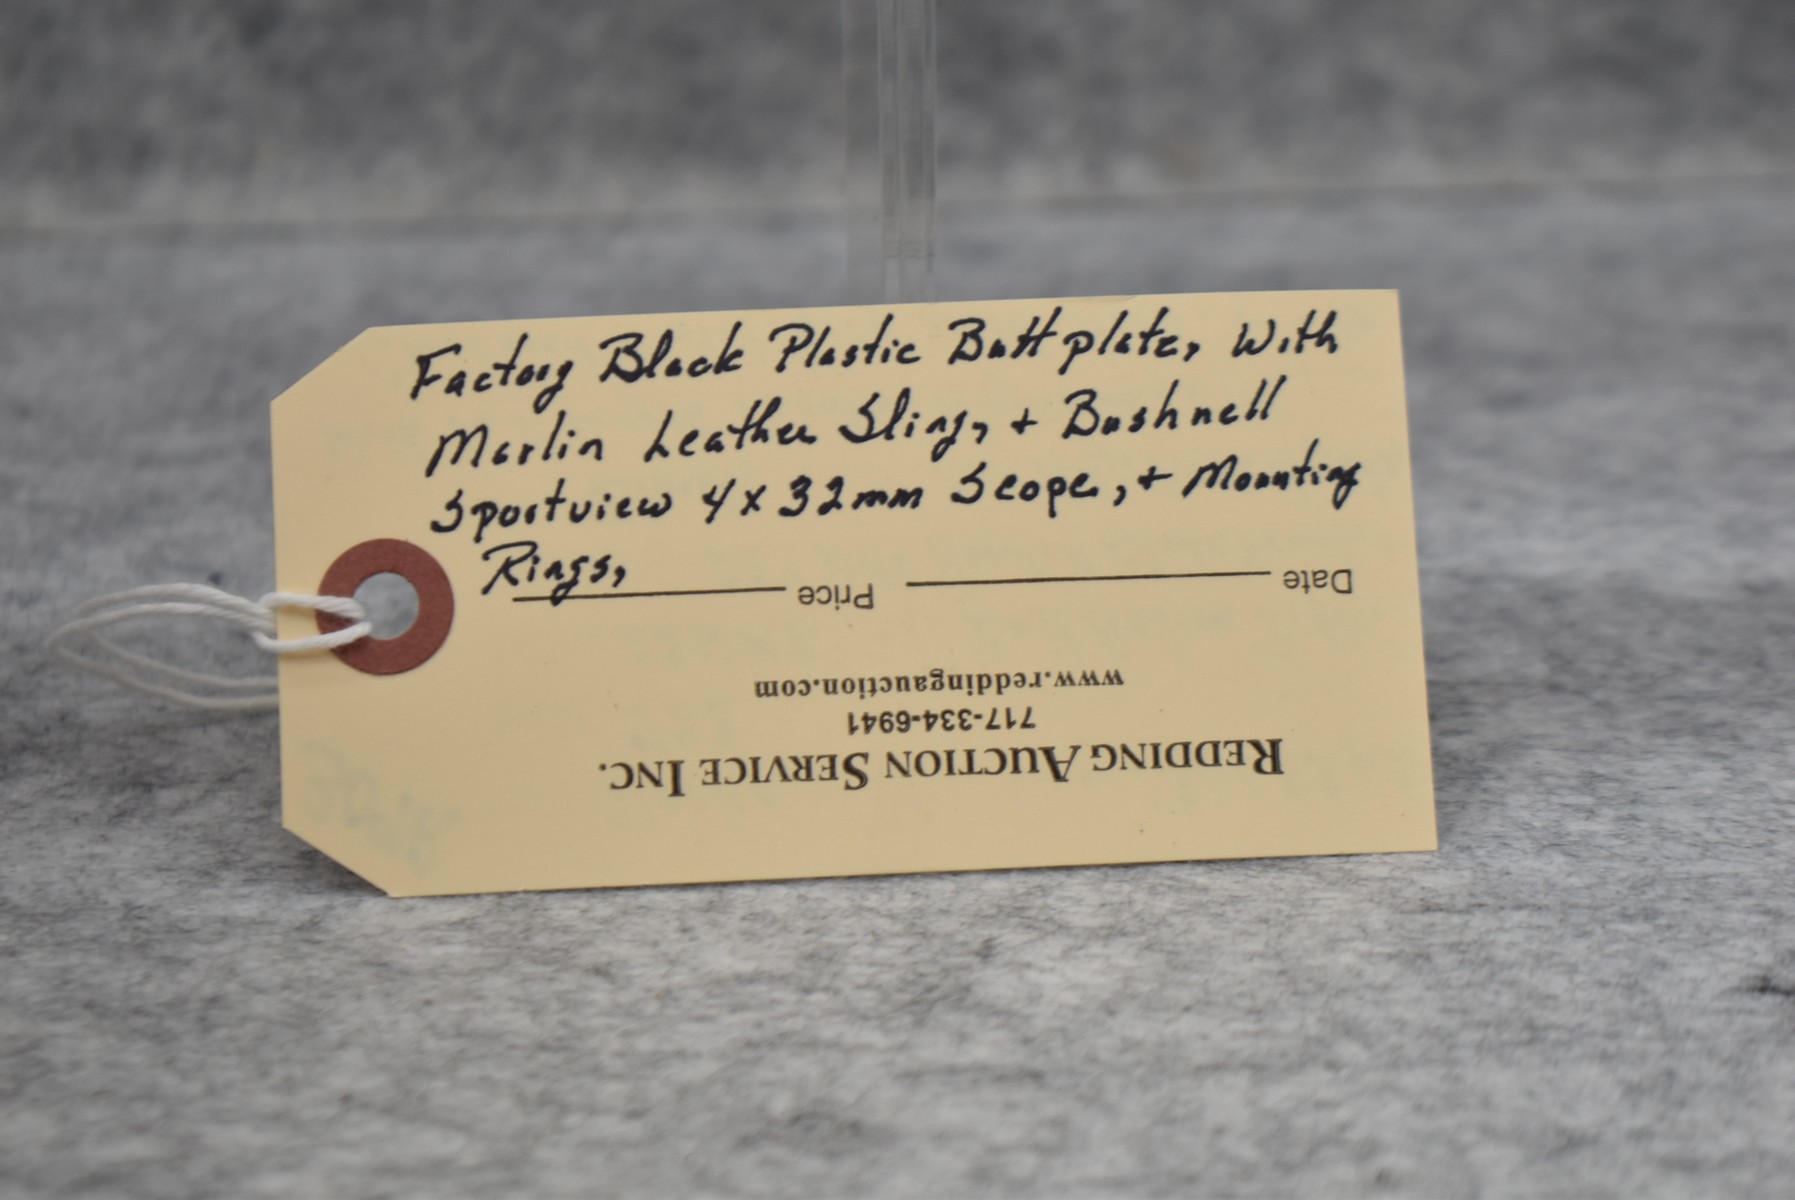 Factory Black Plastic Buttplate, With
Marlin Leather Sling, + Bushnell
Sportview 4x32mm Scope, + Mounting
Rings,
Date Price
www.reddingauction.com
717-334-6941
REDDING AUCTION SERVICE INC.